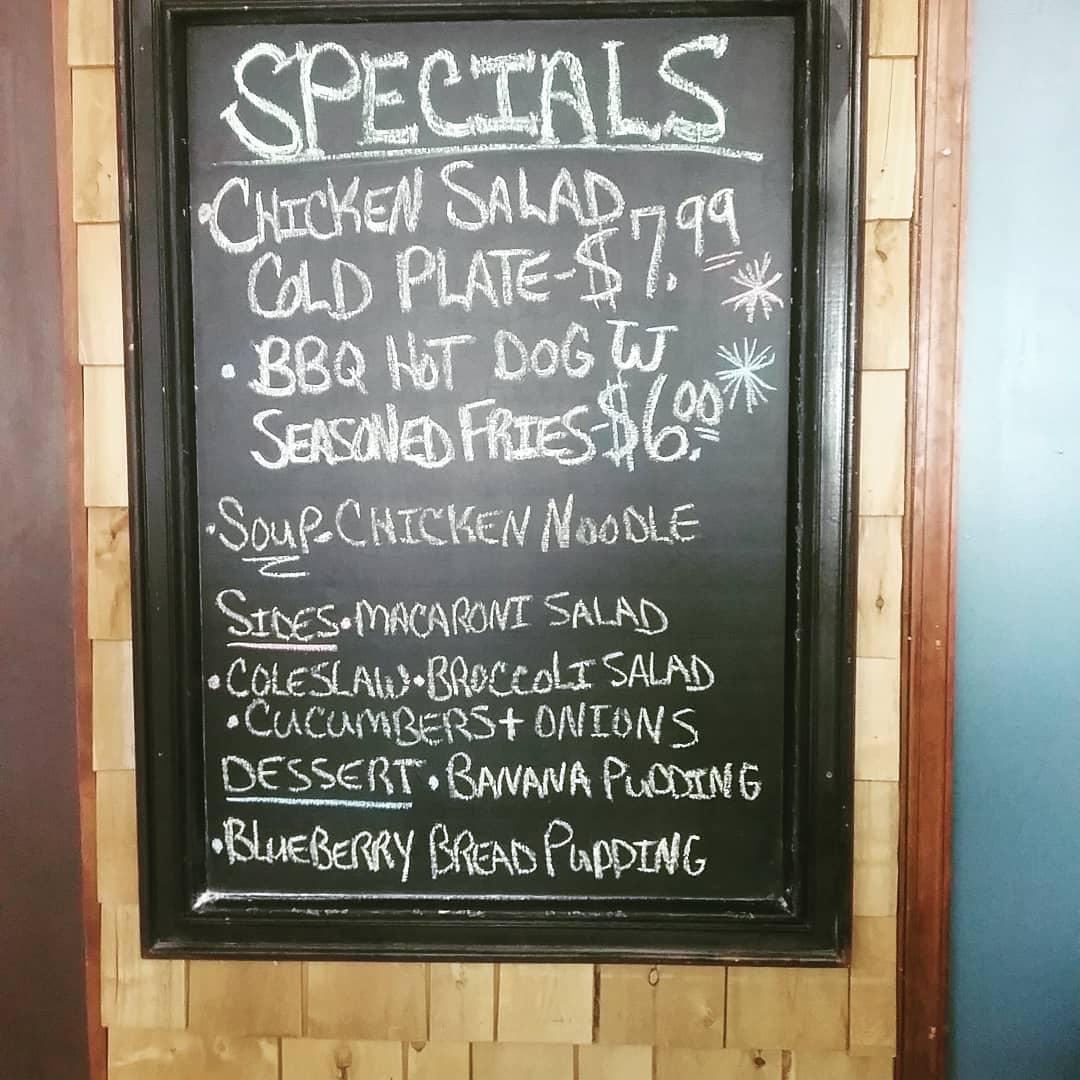 SPECIALS
• CHICKEN SALAD
COLD PLATE - $7.99
• BBQ HOT DOG W
SEASONED FRIES - $6.00
• SOUP - CHICKEN NOODLE
SIDES • MACARONI SALAD
• COLESLAW • BROCCOLI SALAD
• CUCUMBERS + ONIONS
DESSERT • BANANA PUDDING
• BLUEBERRY BREAD PUDDING